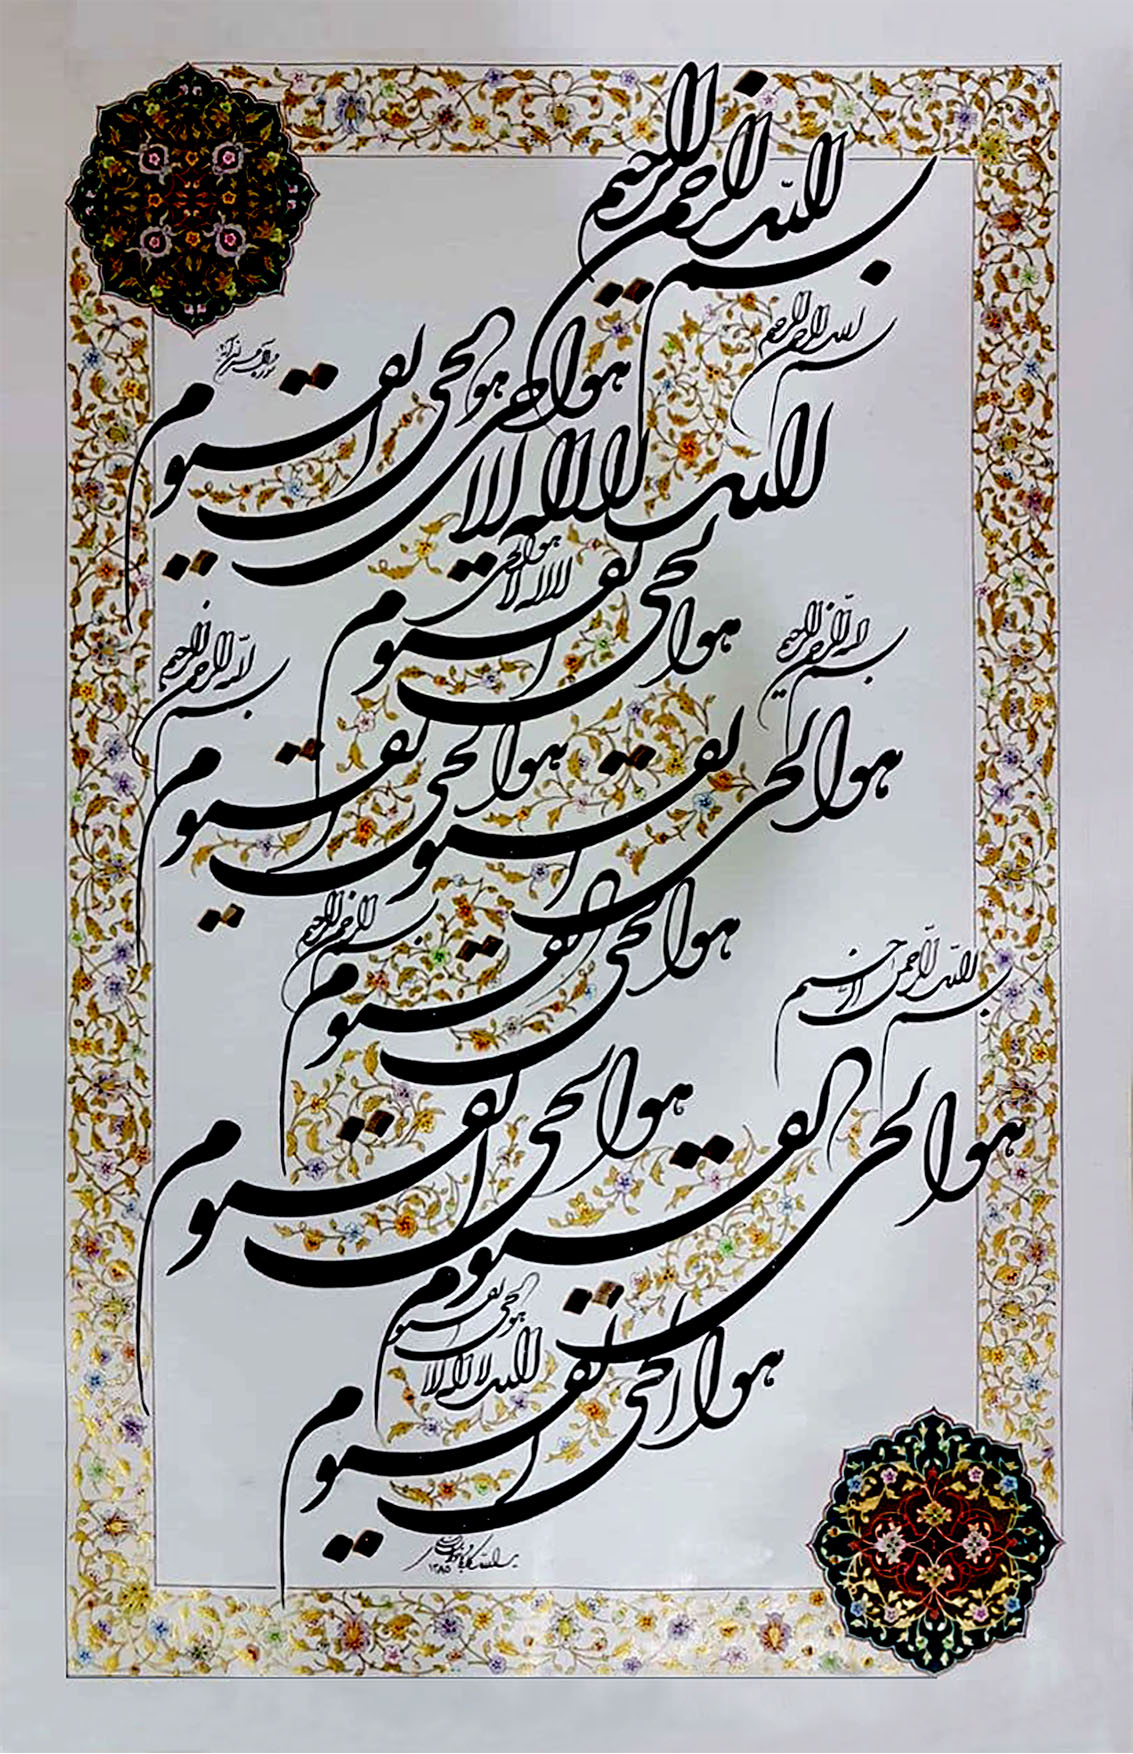 بسم الله الرحمن الرحیم
بسم الله الرحمن الرحیم
الله لا اله الا هو الحی القیوم
هو الحی القیوم
لا اله الا هو الحی
بسم الله الرحمن الرحیم
بسم الله الرحمن الرحیم
هو الحی القیوم
هو الحی القیوم
بسم الله الرحمن الرحیم
هو الحی القیوم
بسم الله الرحمن الرحیم
هو الحی القیوم
هو الحی القیوم
الله لا اله الا هو الحی القیوم
هو الحی القیوم
۱۳۸۵